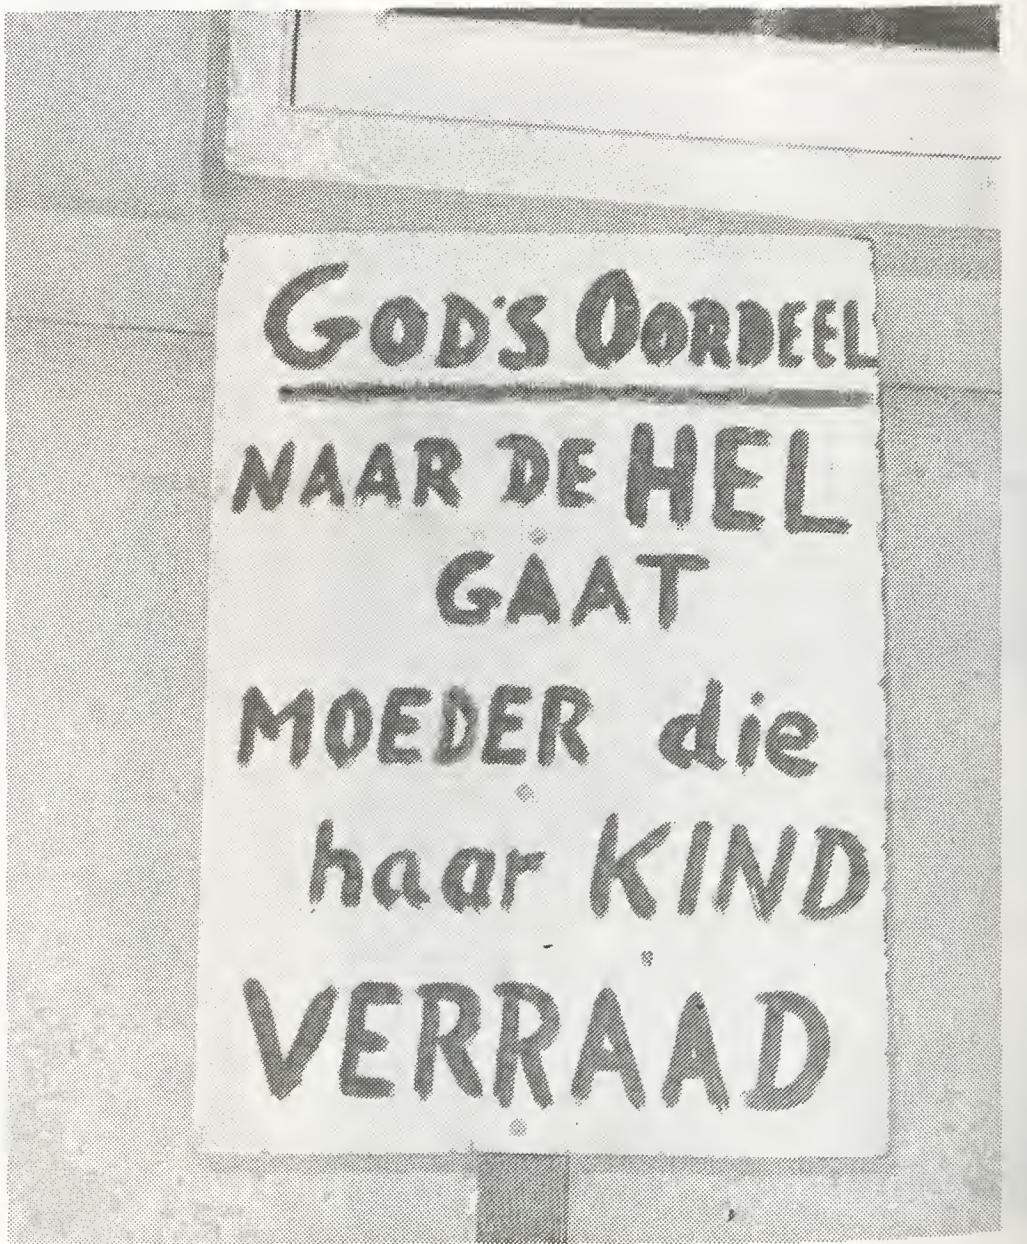 GOD'S OORDEEL
NAAR DE HEL
GAAT
MOEDER die
haar KIND
VERRAAD